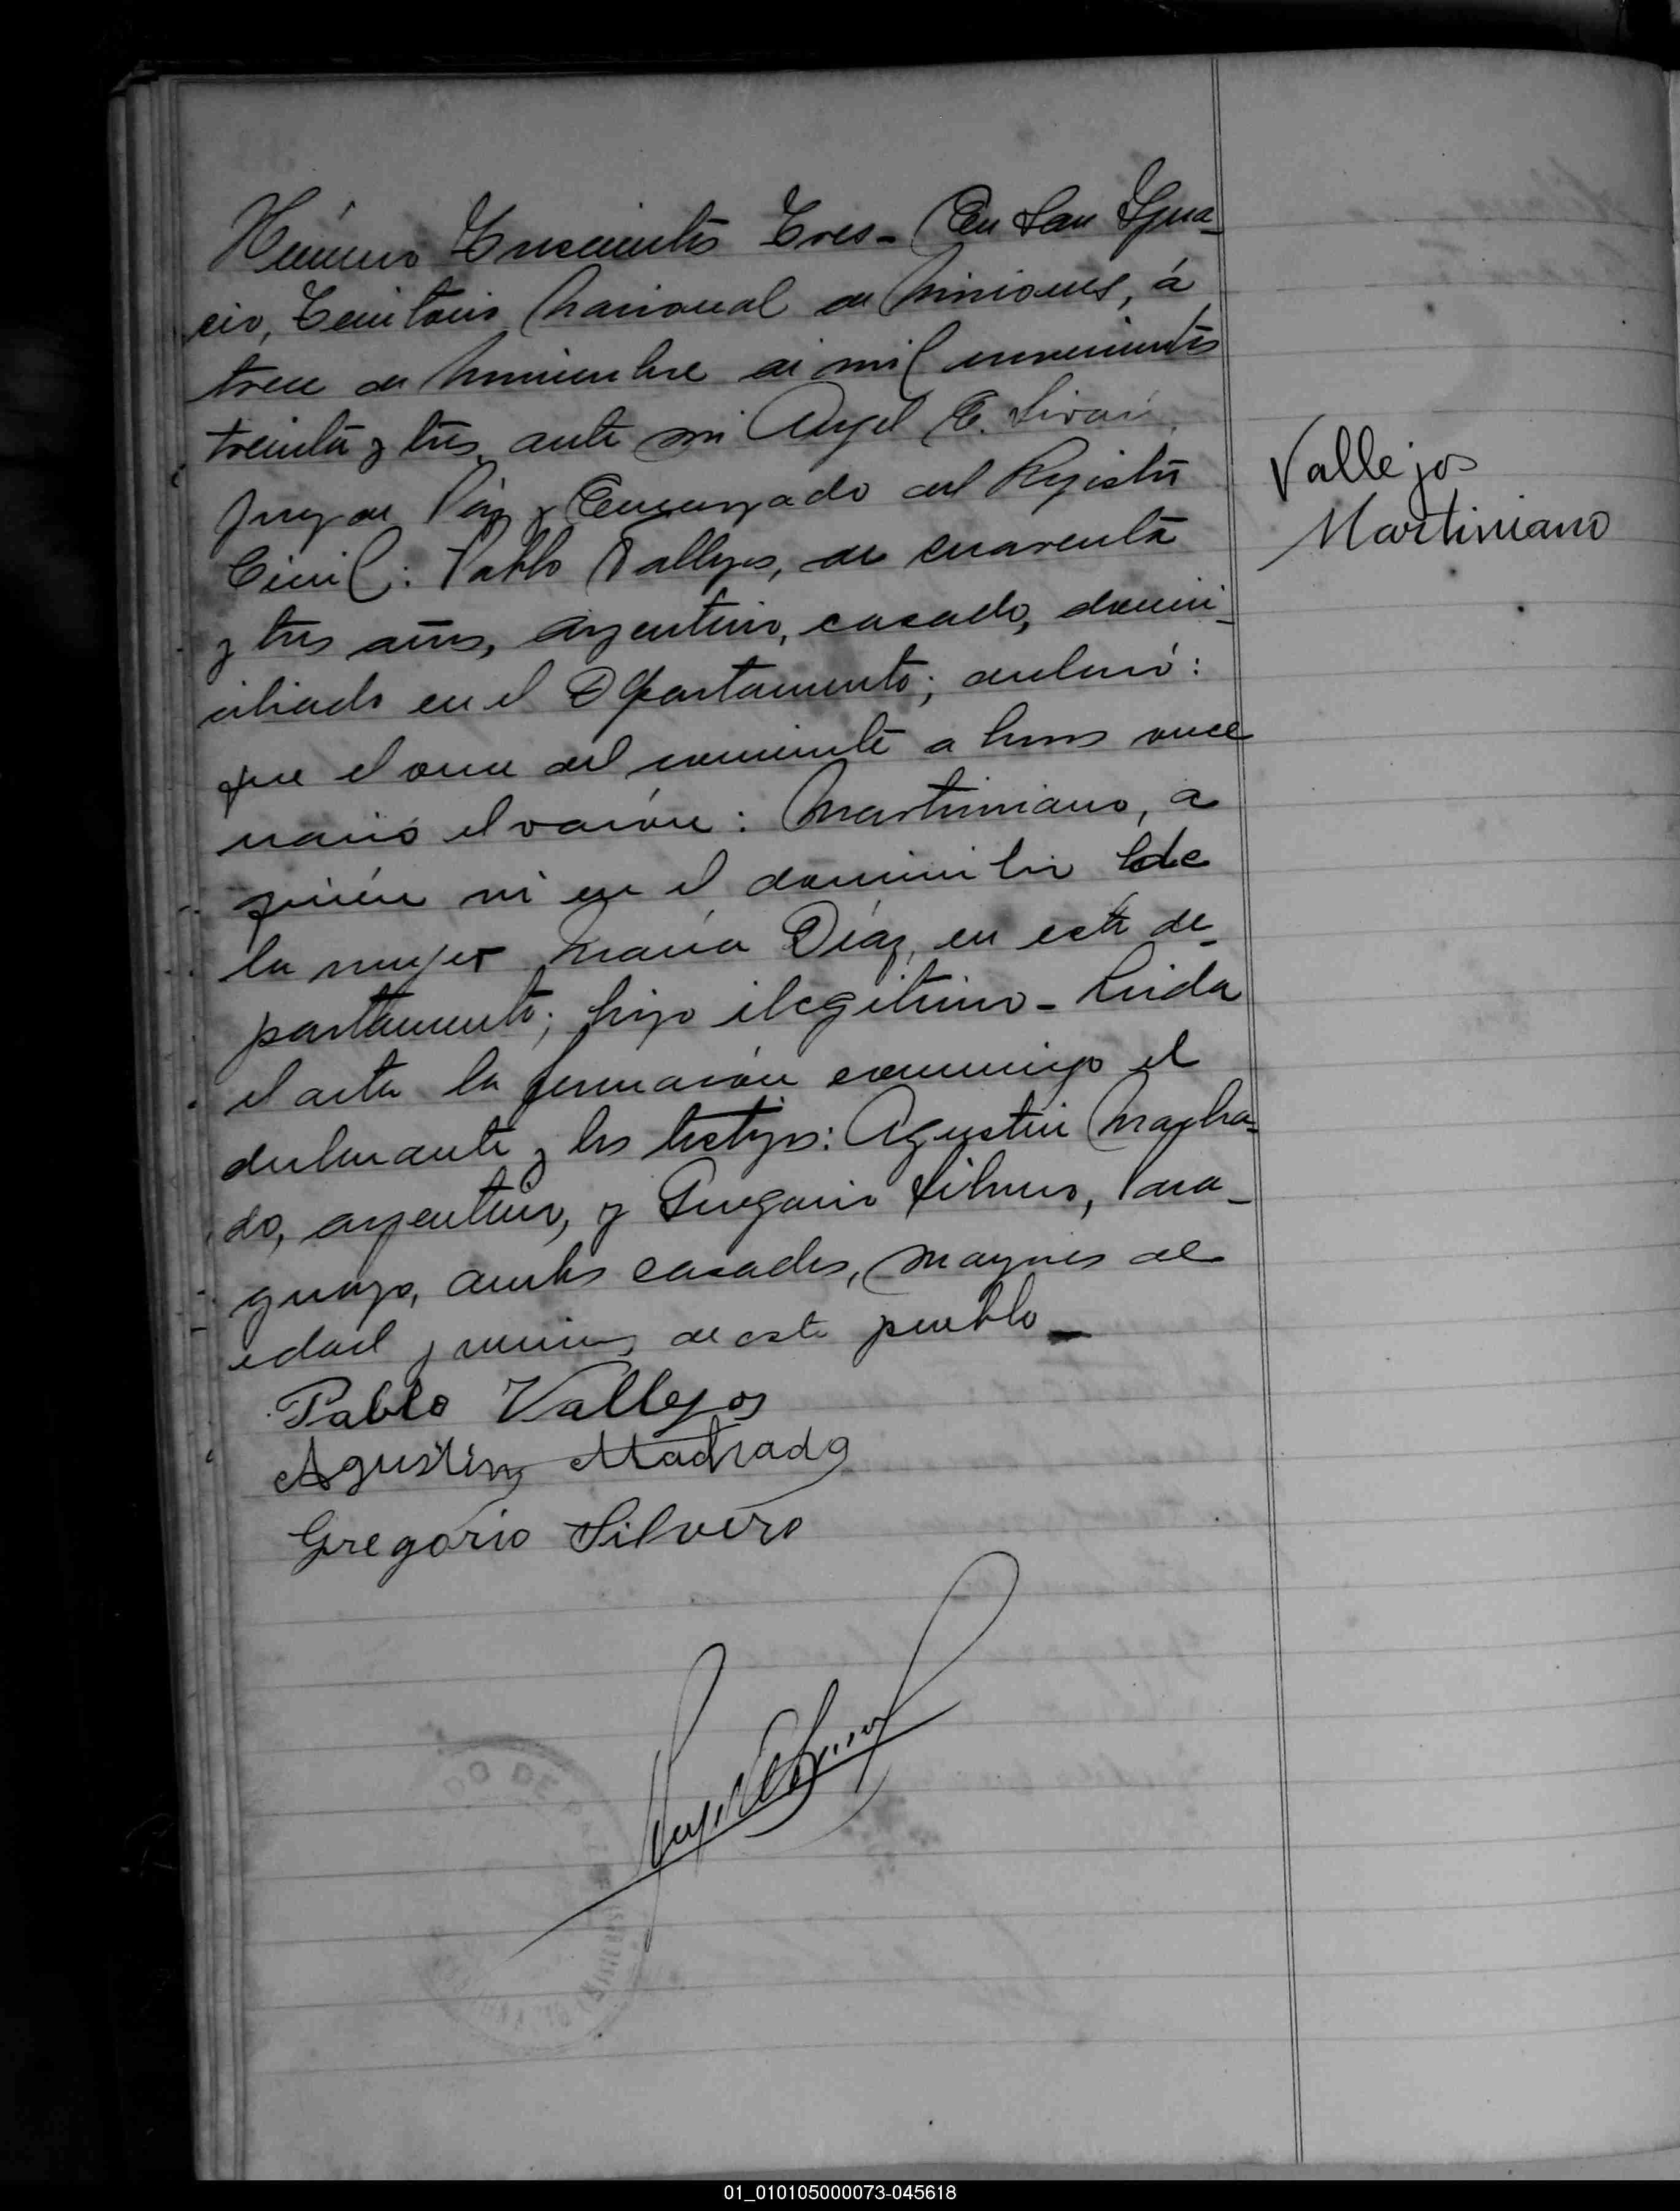 Número Trescientos Tres- En San Igna-
cio, Territorio Nacional de Misiones, á
trece de Noviembre de mil novecientos
treinta y tres, ante mi Angel E.
Juez de Páz y Encargado del Registro
Civil: Pablo Vallejos, de cuarenta
y tres años, argentino, casado, domi-
ciliado en el Departamento; declaró:
que el once del corriente a horas once
nació el varón: Martiniano, a
quién vi en el domicilio de
la mujer María Díaz, en este de-
partamento; hijo ilegítimo- Leida
el acta la firmarón conmigo el
declarante y los testigos: Agustin Macha-
do, argentino, y Gregorio Silvero, Para-
guayo, ambos casados, mayores de
edad y vecinos de este pueblo-
Pablo Vallejos
Agustin Machado
Gregorio Silvero
Vallejos
Martiniano
DO DE PAZ
01_010105000073-045618